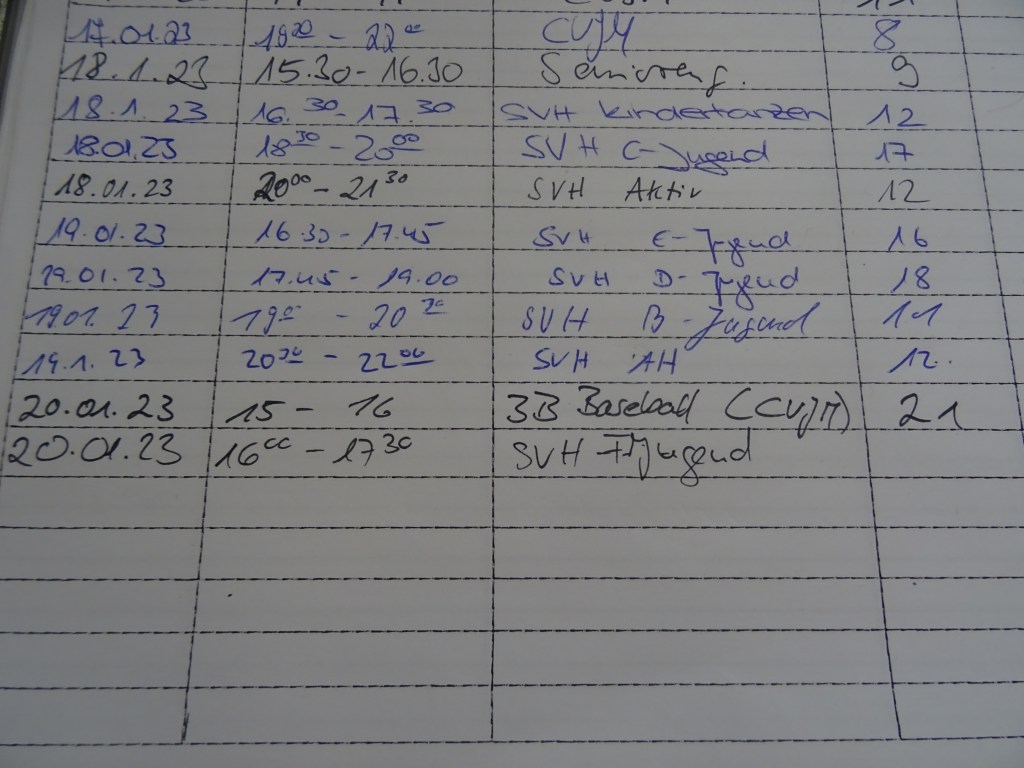 17.01.23 22 00 CVJM 8
18.1.23 15.30-16.30 9
18.1.23 16.30-17.30 SVH Kindertanzen 12
18.01.23 18 30 - 20 00 SVH C-Jugend 17
18.01.23 20 00 - 21 30 SVH Aktiv 12
19.01.23 16.30-17.45 SVH E-Jugend 16
19.01.23 17.45 - 19.00 SVH D-Jugend 18
19.01.23 19 00 - 20 30 SVH B-Jugend 11
19.1.23 20 30 - 22 00 SVH AH 12.
20.01.23 15 - 16 3B Baseball (CVJM) 21
20.01.23 16 00 - 17 30 SVH F-Jugend